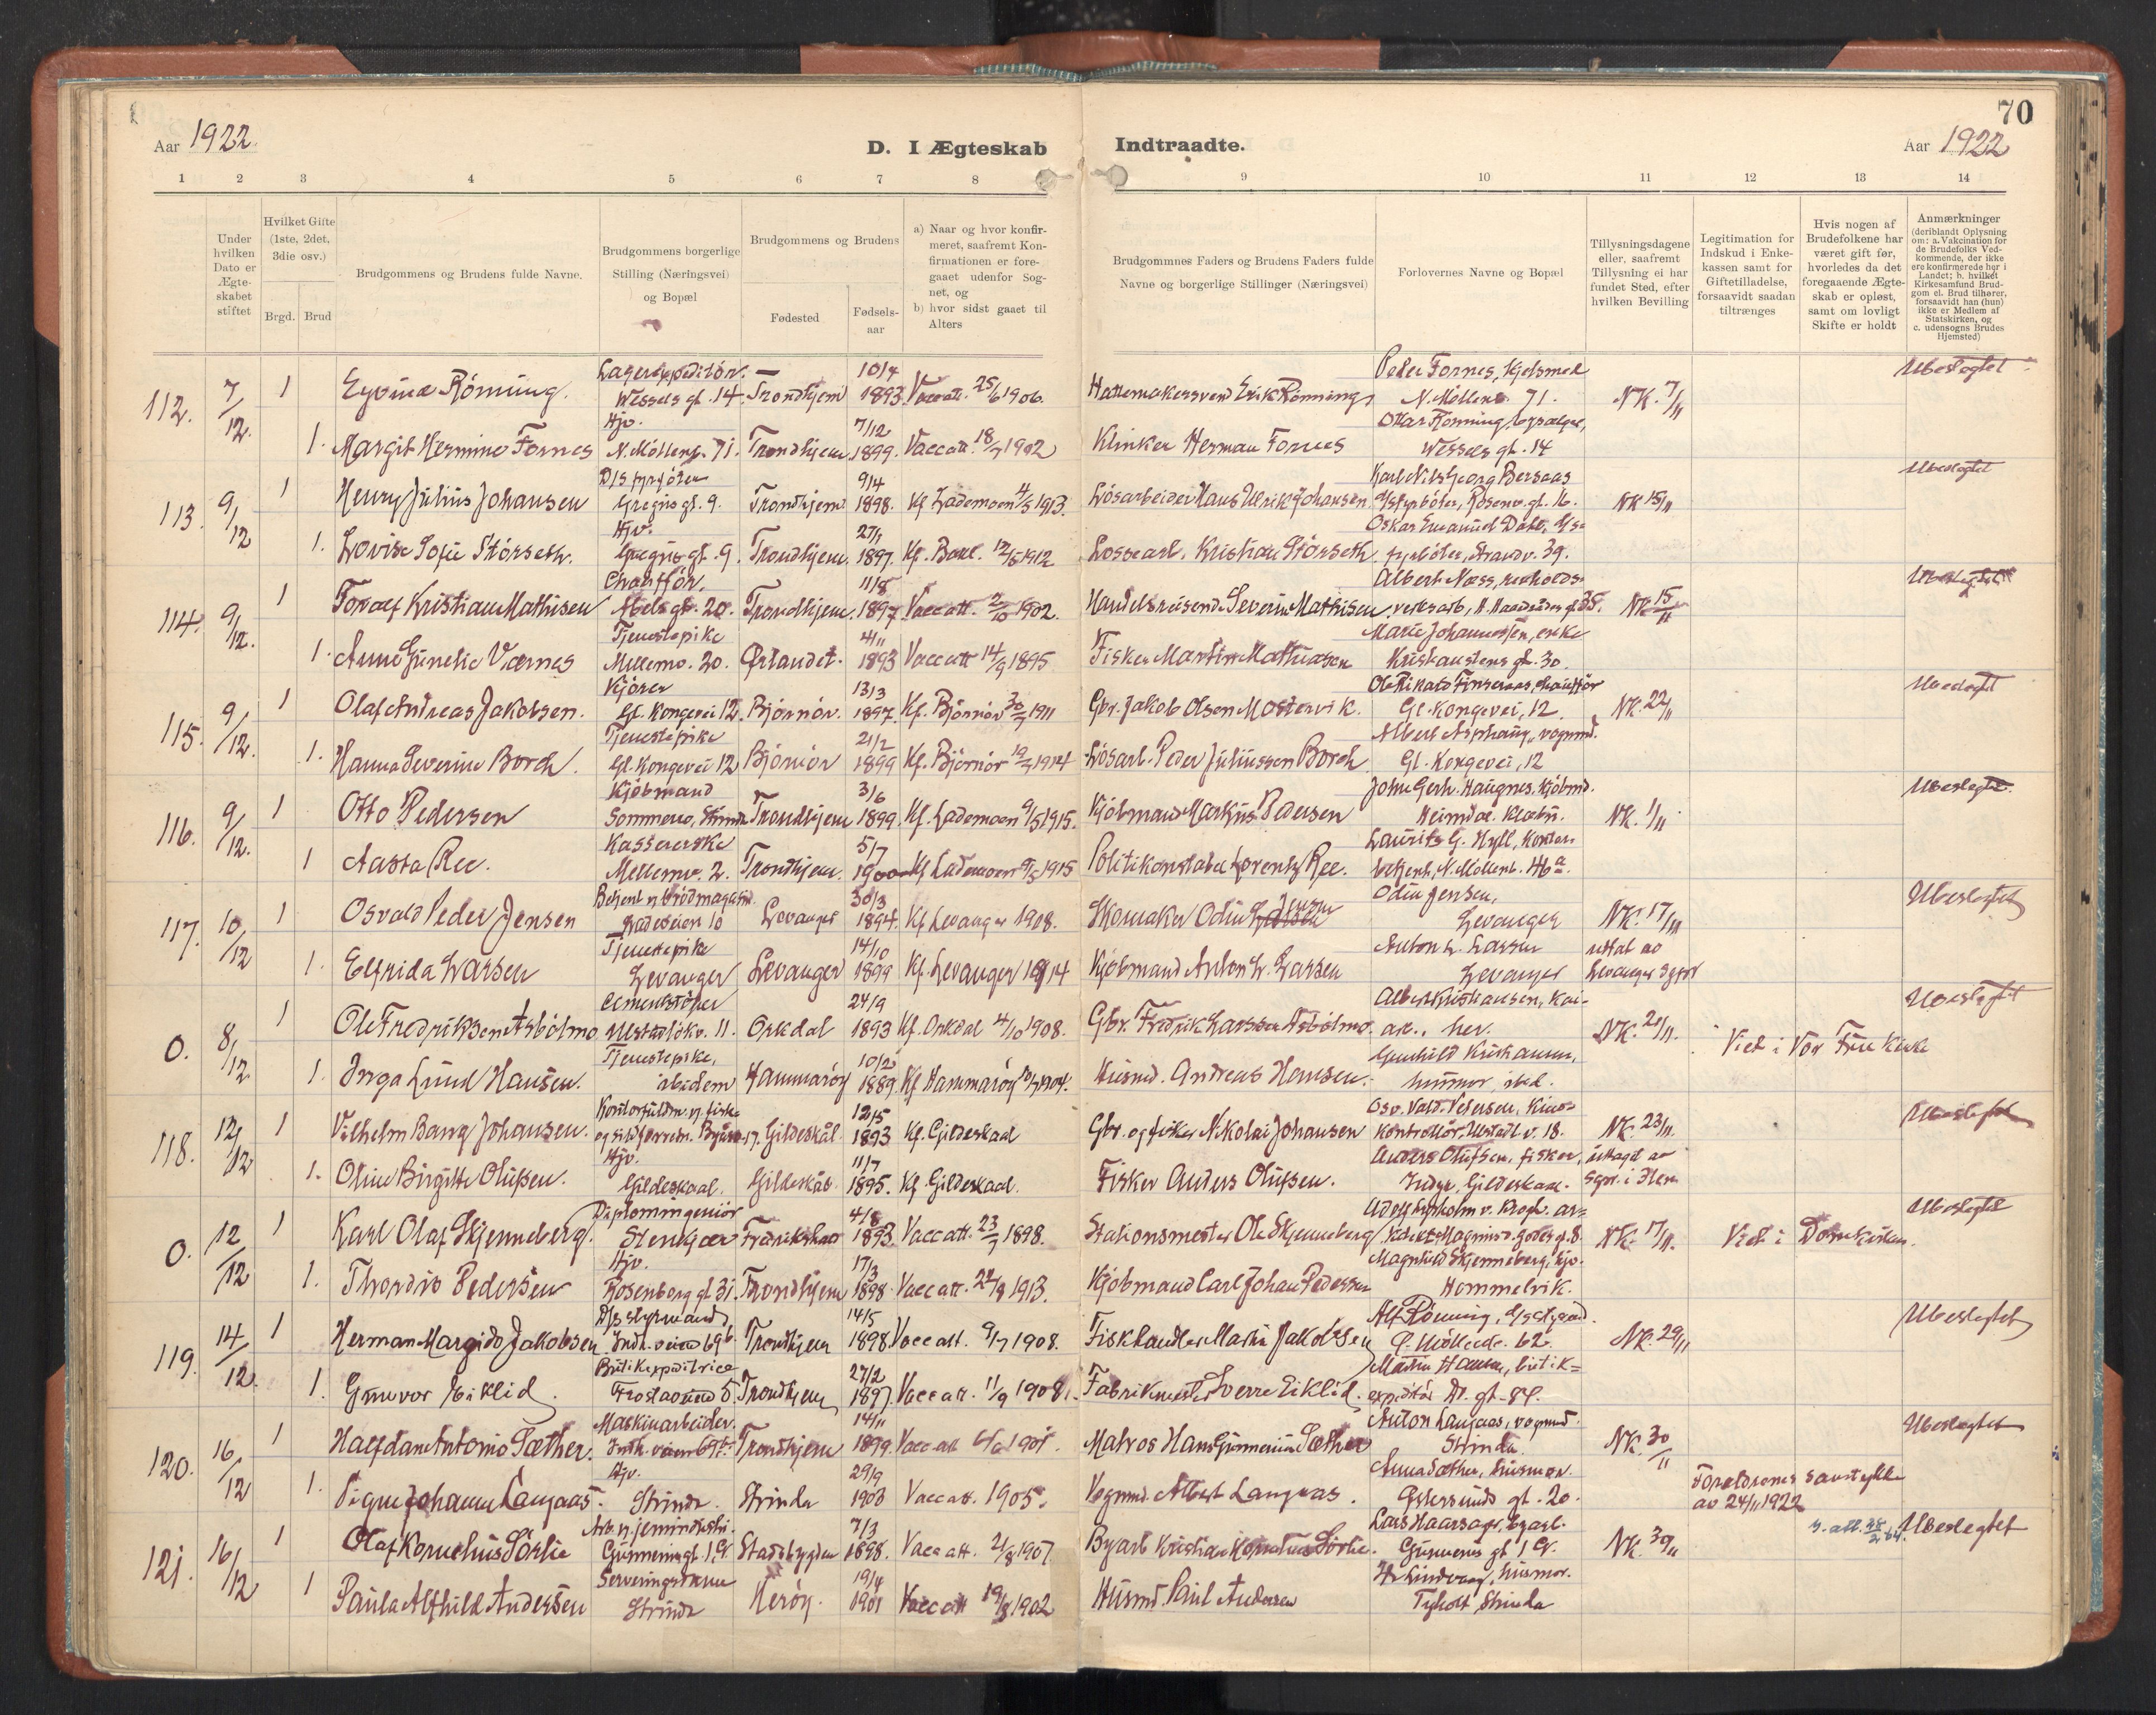 70
Aar 1922.
D. I Ægteskab Indtraadte.
Aar 1922
1 2 3 4 5 6 7 8 9 10 11 12 13 14
Under hvilken Dato er Ægteskabet stiftet
Hvilket Gifte (1ste, 2det, 3die osv.)
Brgd. Brud
Brudgommens og Brudens fulde Navne.
Brudgommens borgerlige Stilling (Næringsvei) og Bopæl
Brudgommens og Brudens
Fødested
Fødselsaar
a) Naar og hvor konfirmeret, saafremt Konfirmationen er foregaaet udenfor Sognet, og
b) hvor sidst gaaet til Alters
Brudgommnes Faders og Brudens Faders fulde Navne og borgerlige Stillinger (Næringsvei)
Forlovernes Navne og Bopæl
Tillysningsdagene eller, saafremt Tillysning ei har fundet Sted, efter hvilken Bevilling
Legitimation for Indskud i Enkekassen samt for Giftetilladelse, forsaavidt saadan tiltrænges
Hvis nogen af Brudefolkene har været gift før, hvorledes da det foregaaende Ægteskab er opløst, samt om lovligt Skifte er holdt
Anmærkninger (deriblandt Oplysning om: a. Vakcination for de Brudefolks Vedkommende, der ikke ere konfirmerede her i Landet; b. hvilket Kirkesamfund Brudgom el. Brud tilhører, forsaavidt han (hun) ikke er Medlem af Statskirken, og c. udensogns Brudes Hjemsted)
112. 7/12. 1 Eyvind Rönning. Lagerexpeditör. Wessels gt. 14. Trondhjem 10/4 1893 Vaccatt. 25/6 1906. Hattemakersvend Erik Rönning Peder Fornes, Kjelsmed N. Möllenb. 71. NK. 7/11 Ubeslegtet
1. Margit Hermine Fornes Hjv. N. Möllenb. 71. Trondhjem 7/12 1899. Vaccatt. 18/7 1902 Klinker Herman Fornes Ottar Rönning, Wessels gt. 14
113. 9/12 1 Henry Julius Johansen D/S fyrböter Gregus gt. 9. Trondhjem 9/4 1898. Kf. Lademoen 4/5 1913. Lösarbeider Hans Ulrik Johansen Karl Nils Georg Bersaas D/S fyrböter, Rosenb. gt. 16. NK 15/11 Ubeslegtet
1. Lovise Sofie Störseth. Hjv. Gregus gt. 9. Trondhjem. 27/1 1897. Kf. Bakl. 12/5 1912 Lossearb. Kristian Störseth Oskar Emanuel Dahl, D/S fyrböter, Strandv. 39.
114. 9/12. 1 Toralf Kristian Mathisen Chaufför. Abels gt. 20. Trondhjem 11/8 1897 Vaccatt. 2/10 1902. Handelsreisende Severin Mathisen Albert Næss, renholdsverksarb. 35. NK 15/11 Ubeslegtet
1. Anne Gunelie Værnes Tjenestepike Mellemv. 20. Ørlandet. 4/11 1893 Vaccatt 14/9 1895 Fisker Martin Mathiasen Marie Johannessen, enke Kristianstens gt. 30.
115. 9/12. 1 Olaf Andreas Jakobsen. Kjörer Gl. Kongevei 12. Björnör. 13/3 1897. Kf. Björnör 30/7 1911 Gbr. Jakob Olsen Mostervik. Ole Rikard Finseraas, chaufför Gl. Kongevei, 12. NK. 22/11 Ubeslegtet
1. Hanna Severine Borch. Tjenestepike Gl. Kongevei 12 Björnör 21/2 1899 Kf. Björnör 19/7 1914 Lösarb. Peder Juliussen Borch Albert Asphaug, vognmd. Gl. Kongevei, 12
116. 9/12. 1 Otto Pedersen Kjöbmand Sommerro, Strinda Trondhjem 3/6 1899. Kf. Lademoen 9/5 1915. Kjöbmand Markus Pedersen John Gerh. Haugnes, Kjöbmd. Heimdal. Klæbu. NK. 1/11 Ubeslegtet
1 Aasta Ree. Kassererske Mellemv. 2. Trondhjem. 5/7 1900 Kf Lademoen 9/5 1915 Politikonstabel Lorentz Ree. Laurits G. Hyll, kontorbetjent, N. Möllenb. 46a.
117. 10/12 1 Osvald Peder Jensen Betjent v/ Brödmagasin Ladeveien 10 Levanger 30/3 1894. Kf Levanger 1908. Skomaker Odin Jensen Odin Jensen, Levanger NK. 17/11 Ubeslegtet
1. Elfrida Larsen Tjenestepike Levanger Levanger 14/10 1899 Kf. Levanger 1914 Kjöbmand Anton L. Larsen Anton L. Larsen Levanger uttat av Levanger sgpr
0. 8/12 1 Ole Fredriksen Asbölmo Cementstöper Ulstadlökv. 11. Orkdal 24/9 1893 Kf. Orkdal 4/10 1908. Gbr. Fredrik Larssen Asbölmo. Albert Kristiansen, kaiarb., her. NK. 21/11. Viet i Vor Frue Kirke Ubeslegtet
1. Inga Lund Hansen. Tjenestepike, ibidem Hammaröy 10/2 1889. Kf Hammaröy 1904. Husmd. Andreas Hansen. Gunhild Kristiansen, husmor, ibid.
118. 12/12 1 Vilhelm Bang Johansen. Kontorfuldm. v. fiske og sild Gildeskål 12/5 1893 Kf. Gildeskaal Gbr. og fisker Nikolai Johansen Osv. Vald. Petersen, Kinokontrollör, Ulstadl. v. 18. NK. 23/11. Ubeslegtet
1. Oline Birgitte Olufsen. Hjv. Gildeskaal. Gildeskål. 11/7 1895. Kf. Gildeskaal. Fisker Anders Olufsen. Anders Olufsen, fisker, Indyr, Gildeskaal. uttagt av sgpr. i
0. 12/12 1 Karl Olaf Skjenneberg. Diplomingeniör Stenkjær Fredrikshald 4/8 1893 Vaccatt. 23/7 1898. Stationsmester Ole Skjenneberg Magnus d. godes gt. 8. NK 17/11. Viet i Domkirken. Ubeslegtet
1. Thordis Pedersen Hjv. Rosenborg gt 31. Trondhjem 17/3 1898 Vaccatt. 22/8 1913. Kjöbmand Carl Johan Pedersen Magnhild Skjenneberg, hjv. Hommelvik.
119. 14/12. 1 Herman Margido Jakobsen D/S styrmand, Indh. veien 69b. Trondhjem 14/5 1898 Vaccatt. 9/7 1908. Fiskhandler Martin Jakobsen Alf Rönning, 62. NK. 29/11 Ubeslegtet
1. Gunvor Eiklid. Butikexpeditrice Frostaveien 5. Trondhjem 27/2 1897. Vaccatt. 11/9 1908. Fabrikmester Sverre Eiklid. Martin Hansen, butikexpeditör
120. 16/12 1 Halfdan Antonio Sæther. Maskinarbeider. Indh. veien 69b. Trondhjem 14/11 1899. Vaccatt 1901. Matros Hans Gunnerius Sæther Anton Langaas, vognmd. Strinda NK. 30/11 Ubeslegtet
1. Signe Johanne Langaas. Hjv. Strinda. Strinda 29/9 1903 Vaccatt. 1905. Vognmd. Albert Langaas. Anna Sæther, husmor. Østersunds gt. 20. Forældrenes samtykke av 24/11 1922
121. 16/12 1 Olaf Kornelius Sörlie Gunnerusgt. 1, Stadsbygden 7/3 1898. Vaccatt. 2/8 1907. Byarb Kristian Kornelius Sörlie. Lars Haarsaker, byarb. Gunnerus gt 1 NK. 30/11 v. att. 28/2 64 Ubeslegtet
1 Paula Alfhild Andersen Serveringsdame Strinda Heröy. 19/4 1901 Vaccatt 19/8 1902 Husmd. Paul Andersen husmor. Tyholt, Strinda